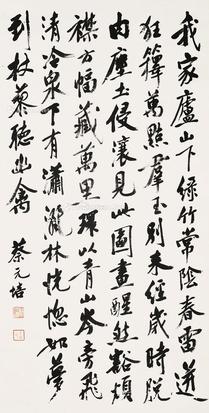 我家廬山下綠竹常陰春雷迸
狂籜萬點群玉別來經歲時脫
內塵土侵瀼見此圖畫醒然豁煩
襟方幅藏萬里環以青山岑旁飛
清冷泉下有瀟灑林恍惚如夢
到杖藜聽幽禽
蔡元培